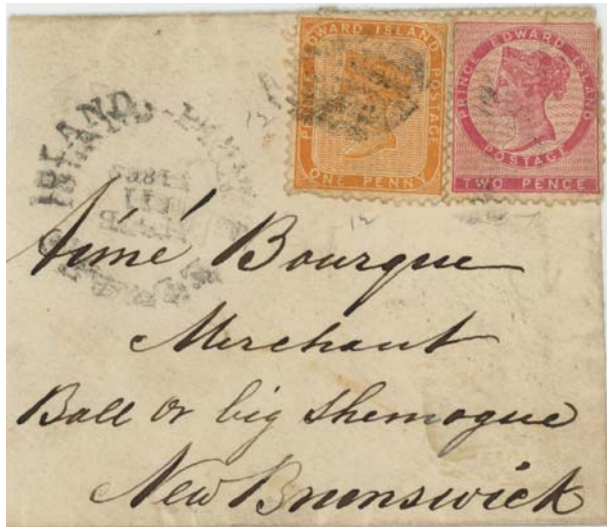 PRINCE EDWARD ISLAND POSTAGE
ONE PENNY
PRINCE EDWARD ISLAND
POSTAGE
TWO PENCE
ISLAND
12
12
Aimé Bourque
Merchant
Ball or big Shemogue
New Brunswick